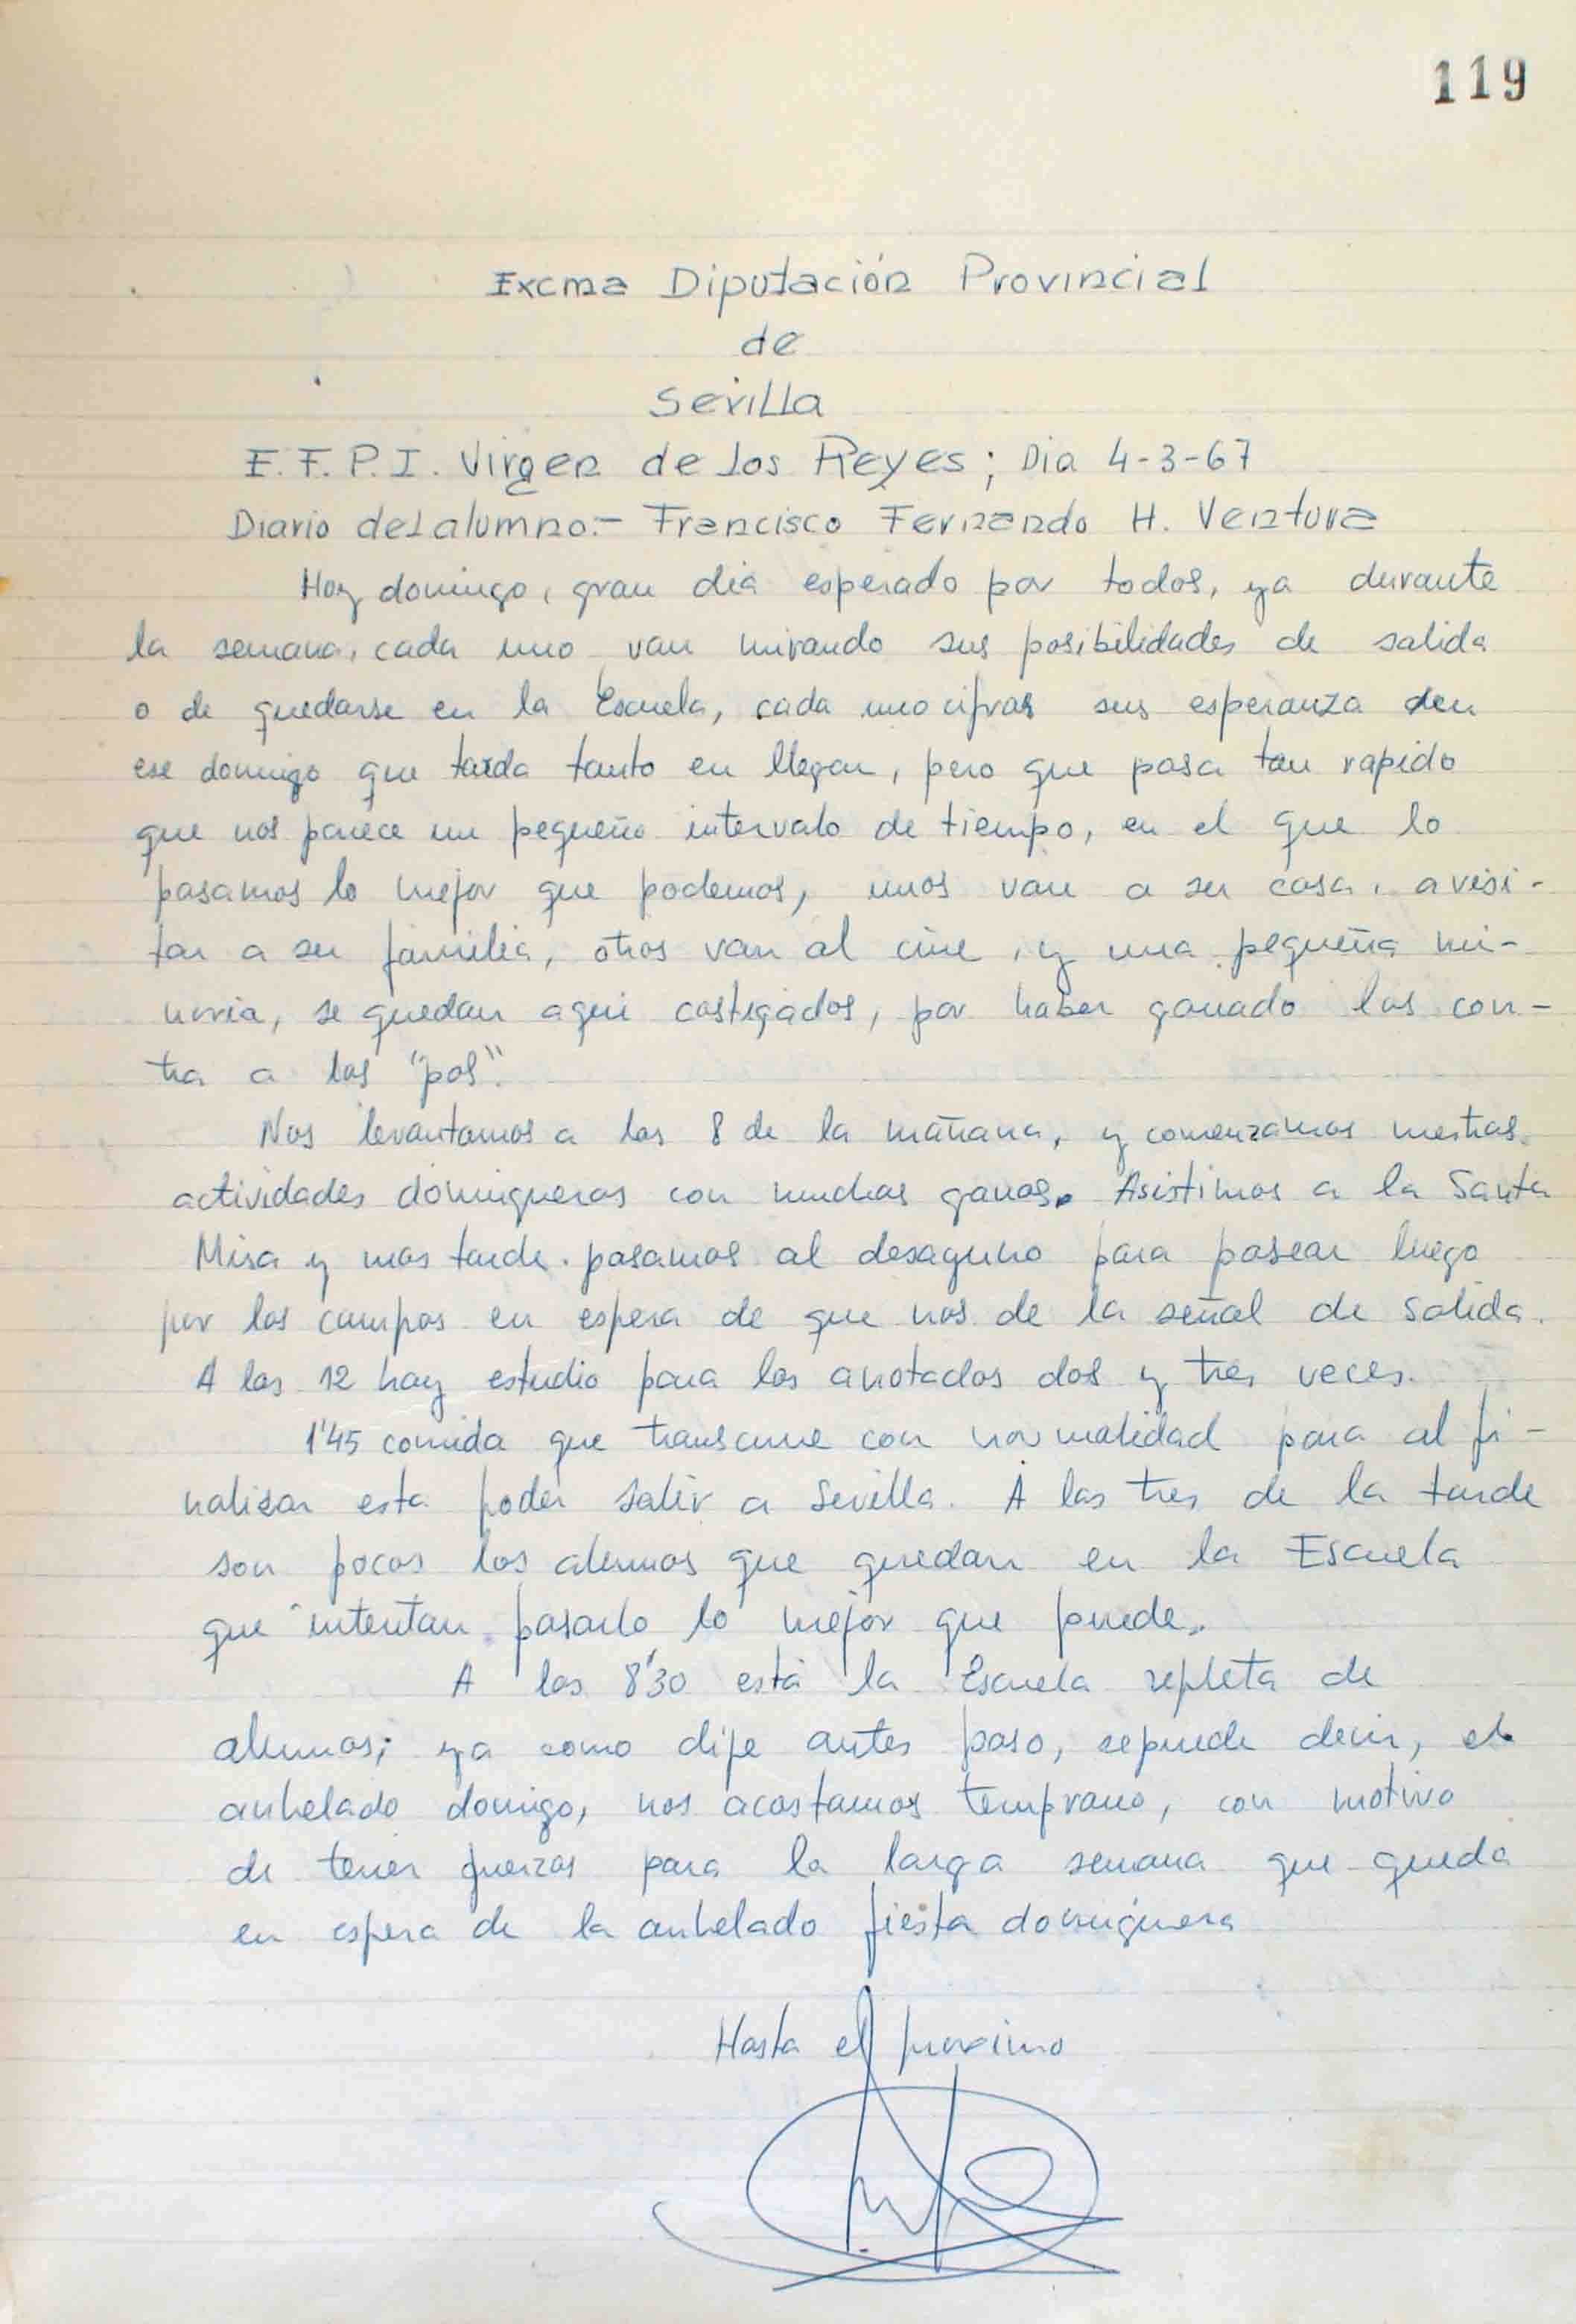 119
Excma Diputación Provincial
de
Sevilla
E.F.P.I. Virgen de los Reyes; Dia 4-3-67
Diario del alumno:- Francisco Fernando H. Ventura
Hoy domingo, gran dia esperado por todos, ya durante
la semana, cada uno van mirando sus posibilidades de salida
o de quedarse en la Escuela, cada uno cifras sus esperanza den
ese domingo que tarda tanto en llegar, pero que pasa tan rapido
que nos parece un pequeño intervalo de tiempo, en el que lo
pasamos lo mejor que podemos, unos van a su casa, a visi-
tar a su familia, otros van al cine, y una pequeña mi-
noria, se quedan aqui castigados, por haber ganado los con-
tra a los "pos".
Nos levantamos a las 8 de la mañana, y comenzamos nuestras
actividades domingueras con muchas ganas. Asistimos a la Santa
Misa y mas tarde pasamos al desayuno para pasear luego
por los campos en espera de que nos de la señal de salida.
A las 12 hay estudio para los anotados dos y tres veces.
1'45 comida que transcurre con normalidad para al fi-
nalizar esta poder salir a Sevilla. A las tres de la tarde
son pocos los alumnos que quedan en la Escuela
que intentan pasarlo lo mejor que puede.
A las 8'30 está la Escuela repleta de
alumnos; ya como dije antes paso, se puede decir, el
anhelado domigo, nos acostamos temprano, con motivo
de tener fuerzas para la larga semana que queda
en espera de la anhelado fiesta dominguera
Hasta el proximo